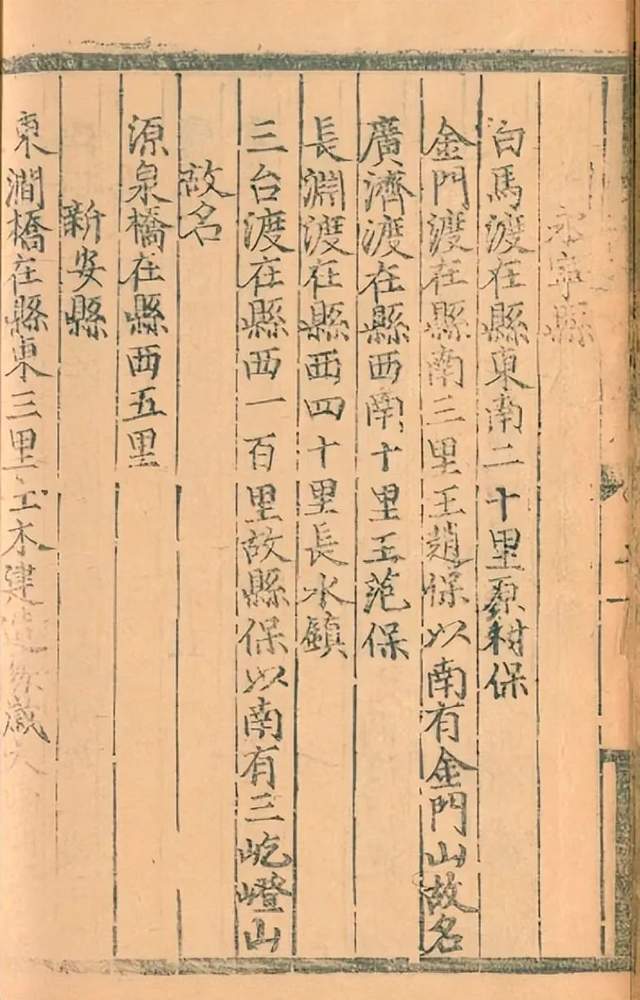 永寧縣
白馬渡在縣東南二十里原村保
金門渡在縣南三里王趙保以南有金門山故名
廣濟渡在縣西南十里王范保
長淵渡在縣西四十里長水鎮
三台渡在縣西一百里故縣保以南有三屹嶝山
故名
源泉橋在縣西五里
新安縣
東澗橋在縣東三里土木建造